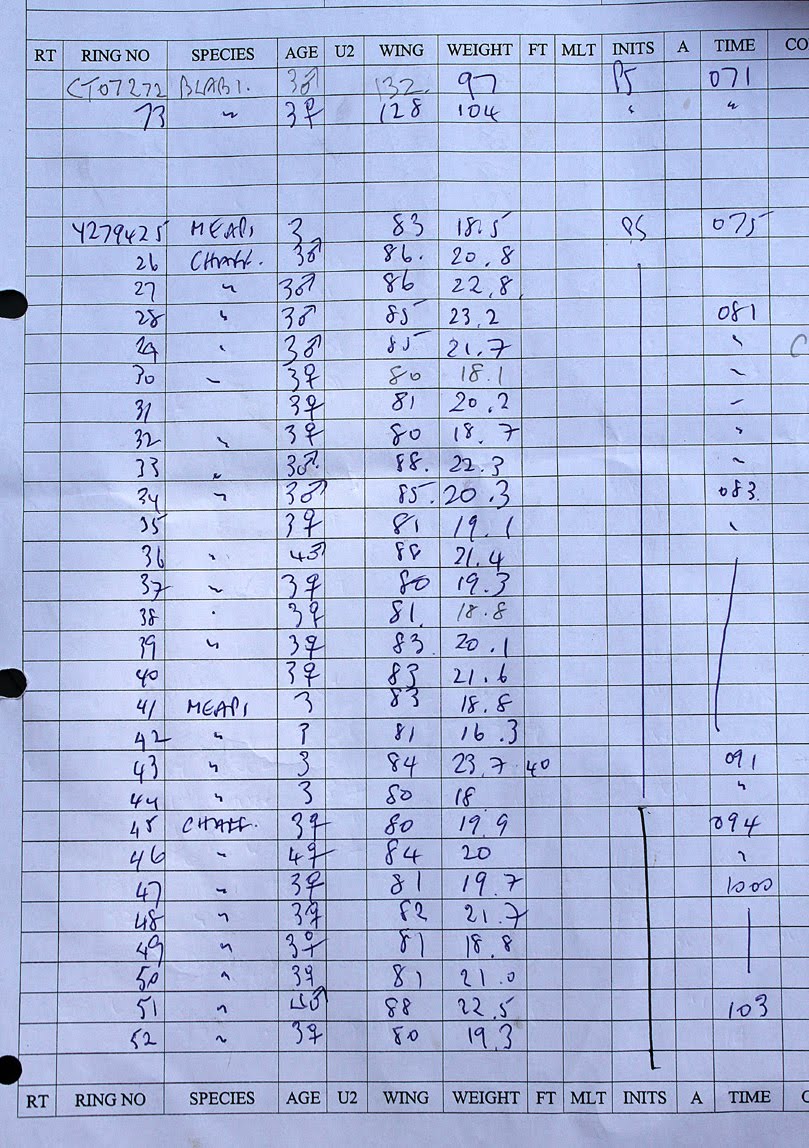 RT RING NO SPECIES AGE U2 WING WEIGHT FT MLT INITS A TIME CO
CT07272 BLABI. 3♂ 132. 97 PS 071
73 " 3♀ 128 104 " "
Y279425 MEAPI 3 83 18.5 PS 075
26 CHAFF. 3♂ 86. 20.8
27 " 3♂ 86 22.8
28 " 3♂ 85 23.2 081
29 " 3♂ 85 21.7 " C
30 " 3♀ 80 18.1 "
31 3♀ 81 20.2 "
32 " 3♀ 80 18.7 "
33 " 3♂ 88. 22.3 "
34 " 3♂ 85. 20.3 083.
35 3♀ 81 19.1 "
36 " 4♂ 88 21.4
37 " 3♀ 80 19.3
38 " 3♀ 81 18.8
39 " 3♀ 83 20.1
40 3♀ 83 21.6
41 MEAPI 3 83 18.8
42 " 3 81 16.3
43 " 3 84 23.7 40 091
44 " 3 80 18 "
45 CHAFF. 3♀ 80 19.9 094
46 " 4♀ 84 20 "
47 " 3♀ 81 19.7 1000
48 " 3♀ 82 21.7
49 " 3♀ 81 18.8
50 " 3♀ 81 21.0
51 " 4♂ 88 22.5 103
52 " 3♀ 80 19.3
RT RING NO SPECIES AGE U2 WING WEIGHT FT MLT INITS A TIME C